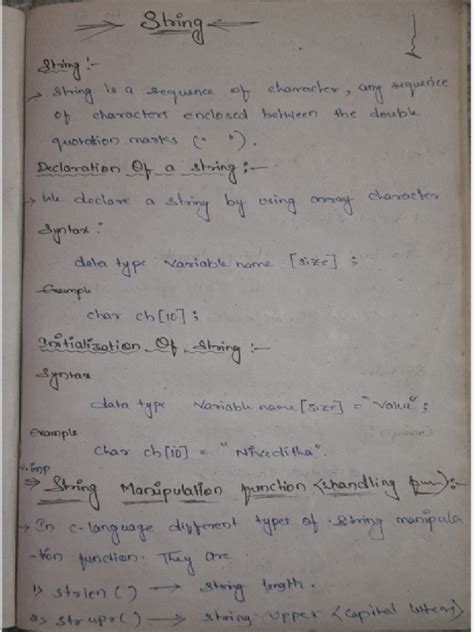 String
String :-
→ String is a sequence of character, any sequence
of characters enclosed between the double
quotation marks (" ").
Declaration Of a string :-
→ We declare a string by using array character
Syntax :
data type variable name [size] ;
Exampl
char ch[10] ;
Initialization Of string :-
Syntax
data type variable name [size] = "Value" ;
Example
Char ch[10] = "Niveditha".
v.imp
⇒ String Manipulation function <handling fun> :-
→ In c-language different types of string manipula
-tion function. They are
1) strlen( ) → string length.
2) strupr( ) → string upper <capital letters>